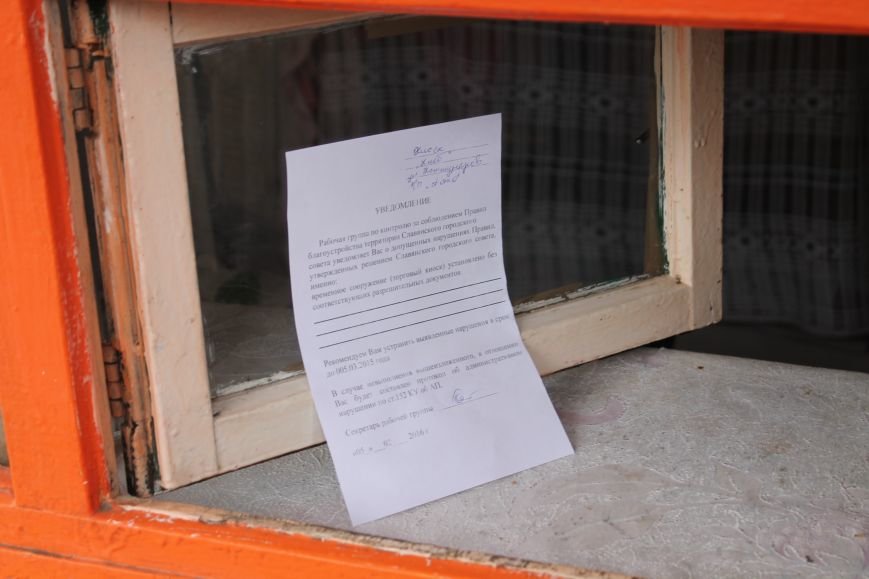 Киоск
УВЕДОМЛЕНИЕ
Рабочая группа по контролю за соблюдением Правил
благоустройства территории Славянского городского
совета уведомляет Вас о допущенных нарушениях Правил,
утвержденных решением Славянского городского совета,
именно:
временное сооружение (торговый киоск) установлено без
соответствующих разрешительных документов
Рекомендуем Вам устранить выявленные нарушения в срок
до 005.03.2015 года
В случае невыполнения вышеизложенного, в отношении
Вас будет составлен протокол об административном
нарушении по ст.152 КУ об АП.
Секретарь рабочей группы
«05 » 02 2016 г